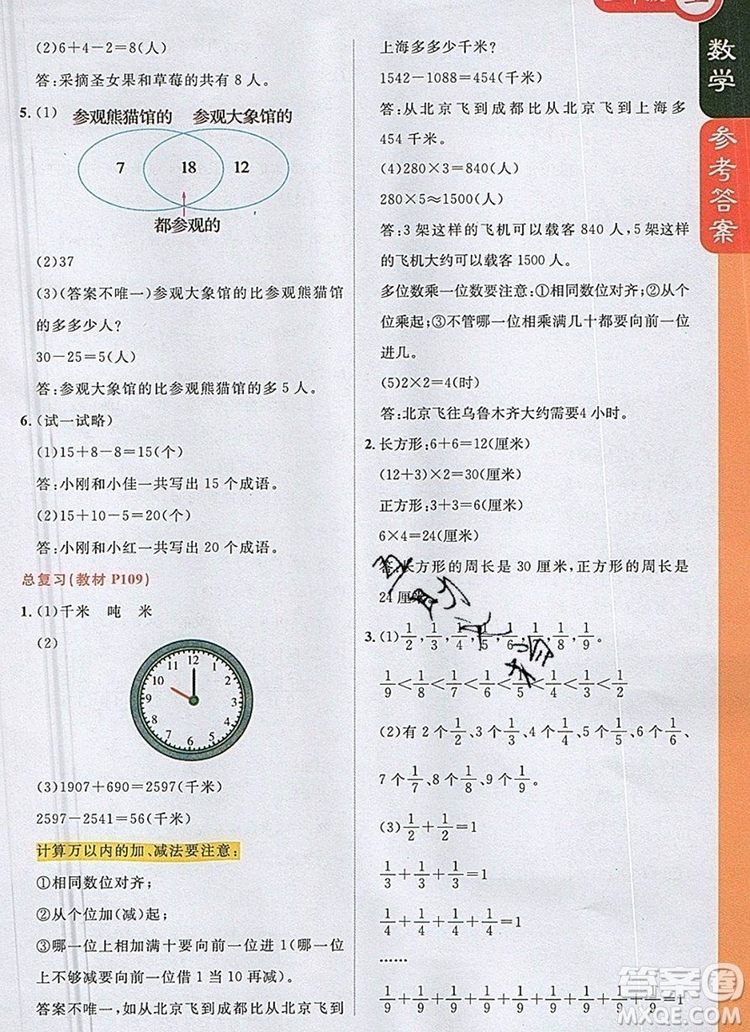 (2)6+4-2=8(人)
答:采摘圣女果和草莓的共有 8 人。
5. (1) 参观熊猫馆的 参观大象馆的
7 18 12
都参观的
(2)37
(3)(答案不唯一)参观大象馆的比参观熊猫馆
的多多少人?
30-25=5(人)
答:参观大象馆的比参观熊猫馆的多 5 人。
6. (试一试略)
(1)15+8-8=15(个)
答:小刚和小佳一共写出 15 个成语。
(2)15+10-5=20(个)
答:小刚和小红一共写出 20 个成语。
总复习(教材 P109)
1. (1)千米 吨 米
(2)
12
1
2
3
4
5
6
7
8
9
10
11
(3)1907+690=2597(千米)
2597-2541=56(千米)
计算万以内的加、减法要注意:
①相同数位对齐;
②从个位加(减)起;
③哪一位上相加满十要向前一位进 1,哪一位
上不够减要向前一位借 1 当 10 再减。
答案不唯一,如从北京飞到成都比从北京飞到
上海多多少千米?
1542-1088=454(千米)
答:从北京飞到成都比从北京飞到上海多
454 千米。
(4)280×3=840(人)
280×5≈1500(人)
答:3 架这样的飞机可以载客 840 人,5 架这样
的飞机大约可以载客 1500 人。
多位数乘一位数要注意:①相同数位对齐;②从个
位乘起;③不管哪一位相乘满几十都要向前一位
进几。
(5)2×2=4(时)
答:北京飞往乌鲁木齐大约需要 4 小时。
2. 长方形:6+6=12(厘米)
(12+3)×2=30(厘米)
正方形:3+3=6(厘米)
6×4=24(厘米)
答:长方形的周长是 30 厘米,正方形的周长是
24 厘米。
3. (1)1/2,1/3,1/4,1/5,1/6,1/7,1/8,1/9。
1/9<1/8<1/7<1/6<1/5<1/4<1/3<1/2
(2)有 2 个1/2、3 个1/3、4 个1/4、5 个1/5、6 个1/6、
7 个1/7、8 个1/8、9 个1/9。
(3)1/2+1/2=1
1/3+1/3+1/3=1
1/4+1/4+1/4+1/4=1
……
1/9+1/9+1/9+1/9+1/9+1/9+1/9+1/9+1/9=1
数学
参考答案
答案圈
MXQE.COM